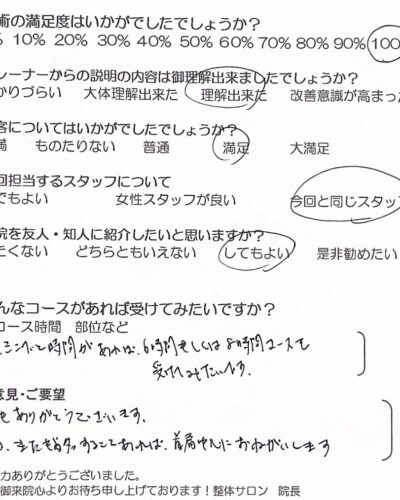 術の満足度はいかがでしたでしょうか？
% 10% 20% 30% 40% 50% 60% 70% 80% 90% 100
レーナーからの説明の内容は御理解出来ましたでしょうか？
かりづらい 大体理解出来た 理解出来た 改善意識が高まった
客についてはいかがでしたでしょうか？
満 ものたりない 普通 満足 大満足
回担当するスタッフについて
でもよい 女性スタッフが良い 今回と同じスタッフ
院を友人・知人に紹介したいと思いますか？
たくない どちらともいえない してもよい 是非勧めたい
んなコースがあれば受けてみたいですか？
コース時間 部位など
時間があれば、6時間もしくは8時間コースも
受けてみたいです。
意見・ご要望
もありがとうございます。
することあれば、 におねがいします
力ありがとうございました。
御来院心よりお待ち申し上げております！整体サロン 院長